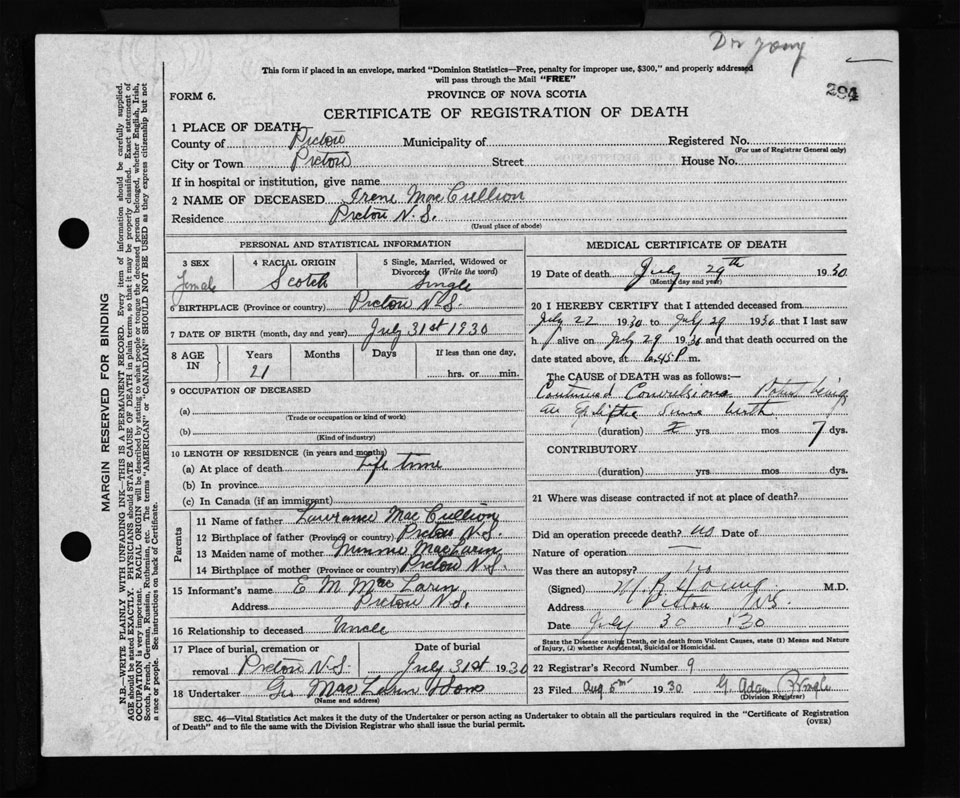 Dr Young
This form if placed in an envelope, marked "Dominion Statistics—Free, penalty for improper use, $300," and properly addressed
will pass through the Mail "FREE"
294
FORM 6.
PROVINCE OF NOVA SCOTIA
CERTIFICATE OF REGISTRATION OF DEATH
1 PLACE OF DEATH
County of Pictou Municipality of Registered No.
(For use of Registrar General only)
City or Town Pictou Street House No.
If in hospital or institution, give name
2 NAME OF DECEASED Irene MacCullion
Residence Pictou N.S.
(Usual place of abode)
MARGIN RESERVED FOR BINDING
N.B.—WRITE PLAINLY WITH UNFADING INK—THIS IS A PERMANENT RECORD. Every item of information should be carefully supplied.
AGE should be stated EXACTLY. PHYSICIANS should STATE CAUSE OF DEATH in plain terms, so that it may be properly classified. Exact statement of
OCCUPATION is very important. RACIAL ORIGIN will be described by stating to what people or tongue the deceased person belonged, whether English, Irish,
Scotch, French, German, Russian, Ruthenian, etc. The terms "AMERICAN" or "CANADIAN" SHOULD NOT BE USED as they express citizenship but not
a race or people. See instructions on back of Certificate.
PERSONAL AND STATISTICAL INFORMATION
3 SEX 4 RACIAL ORIGIN 5 Single, Married, Widowed or
Divorced (Write the word)
Female Scotch Single
6 BIRTHPLACE (Province or country) Pictou N.S.
7 DATE OF BIRTH (month, day and year) July 31st 1930
8 AGE IN Years Months Days If less than one day,
21 hrs. or min.
9 OCCUPATION OF DECEASED
(a)
(Trade or occupation or kind of work)
(b)
(Kind of industry)
10 LENGTH OF RESIDENCE (in years and months)
(a) At place of death Life time
(b) In province
(c) In Canada (if an immigrant)
Parents
11 Name of father Lawrance MacCullion
12 Birthplace of father (Province or country) Pictou N.S.
13 Maiden name of mother Minnie MacLarin
14 Birthplace of mother (Province or country) Pictou N.S.
15 Informant's name E M MacLarin
Address Pictou N.S.
16 Relationship to deceased Uncle
17 Place of burial, cremation or removal Date of burial
Pictou N.S. July 31st 1930
18 Undertaker Geo MacLarin & Sons
(Name and address)
MEDICAL CERTIFICATE OF DEATH
19 Date of death July 29th 1930
(Month, day and year)
20 I HEREBY CERTIFY that I attended deceased from
July 22 1930 to July 29 1930 that I last saw
h alive on July 29 1930 and that death occurred on the
date stated above, at 6.45 P m.
The CAUSE OF DEATH was as follows:—
Continued Convulsions Patient being
an Epileptic since birth
(duration) yrs mos 7 dys.
CONTRIBUTORY
(duration) yrs. mos dys.
21 Where was disease contracted if not at place of death?
Did an operation precede death? no Date of
Nature of operation —
Was there an autopsy? no
(Signed) Young M.D.
Address Pictou NS.
Date July 30 130
State the Disease causing Death, or in death from Violent Causes, state (1) Means and Nature
of Injury, (2) whether Accidental, Suicidal or Homicidal.
22 Registrar's Record Number 9
23 Filed Aug 5th 1930 G. Adam
(Division Registrar)
SEC. 46—Vital Statistics Act makes it the duty of the Undertaker or person acting as Undertaker to obtain all the particulars required in the "Certificate of Registration
of Death" and to file the same with the Division Registrar who shall issue the burial permit.
(OVER)